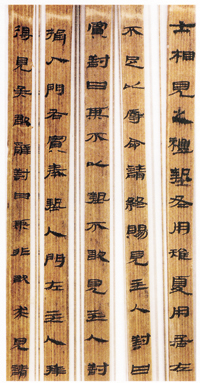 士相見之禮摯冬用雉夏用居左
不足以辱命請終賜見主人對曰
賓對曰某不以摯不敢見主人對
揖入門右賓奉摯入門左主人拜
得見矣敢辭對曰某非敢求見請